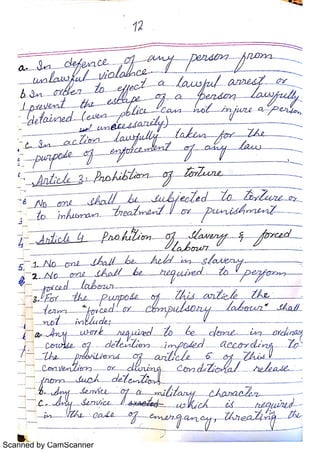 12
a. In defence of any person from
unlawful violance.
b. In order to effect a lawful arrest or
prevent the escape of a person lawfully
detained (even police can not injure a person
not unnecessarily)
c. In action lawfully taken for the
purpose of enforcement of any law
Article 3: Prohibition of torture
No one shall be subjected to torture or
to inhuman treatment or punishment
Article 4 Prohition of slavery & forced
labour
1. No one shall be held in slavery
2. No one shall be required to perform
forced labour
3. For the purpose of this article the
term "forced or compulsory labour" shall
not include:
a. Any work required to be done in ordinary
course of detention imposed according to
the provisions of article 5 of this
convention or during conditional release
from such detention
b. Any service of a military character
c. Any service exacted which is required
in the case of emergancy, threating the
Scanned by CamScanner